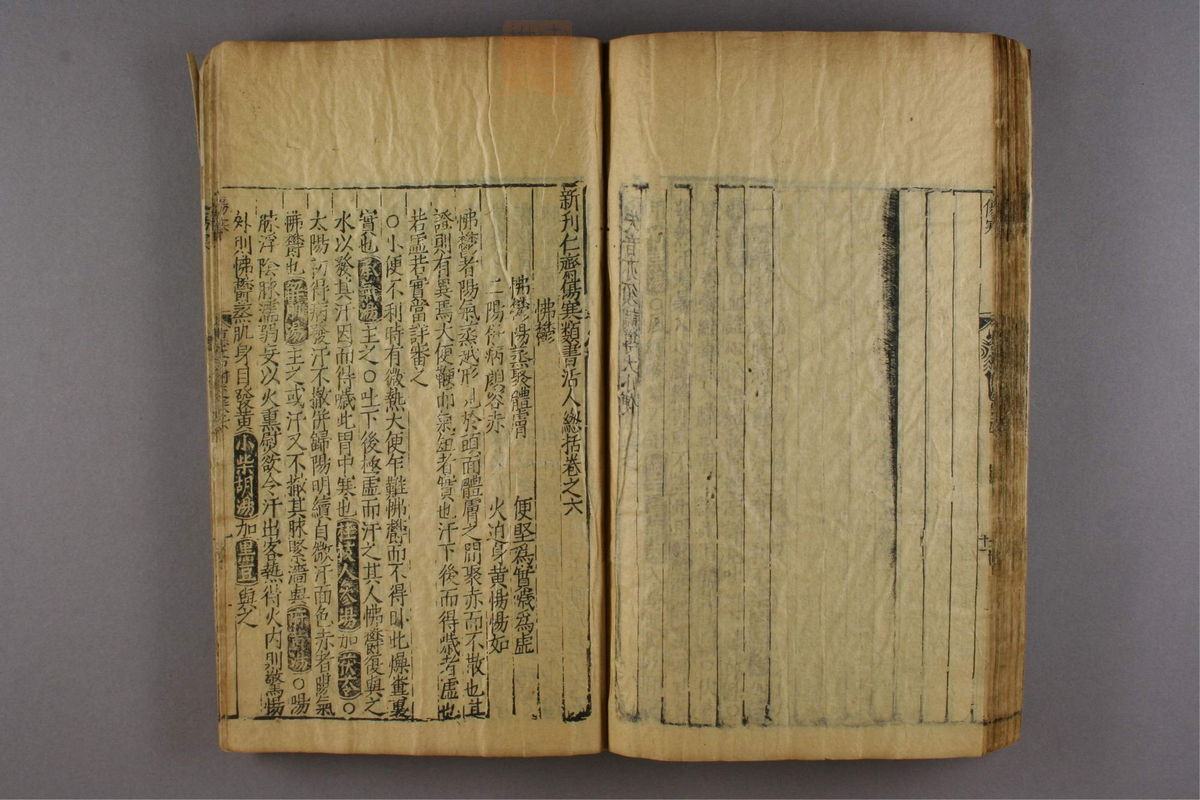 新刊仁齋傷寒類書活人總括卷之六
怫鬱
怫鬱陽蒸聚體膚 便堅為實噦為虛
二陽倂病鷄谷赤 火迫身黃惕惕如
怫鬱者陽氣蒸越形於頭面體膚之間聚赤而不散也其
證則有異焉大便鞕而氣短者實也汗下後而得噦者虛也
若虛若實當詳審之
○小便不利時有微熱大便乍難怫鬱而不得臥此燥糞裏
實也承氣湯主之○吐下後極虛而汗之其人怫鬱復與之
水以發其汗因而得噦此胃中寒也桂枝人參湯加茯苓○
太陽初得病發汗不撤倂歸陽明續自微汗面色赤者陽氣
怫鬱也解肌湯主之或汗又不撤其脉緊濇與麻黃湯○陽
脉浮陰脉濡弱妄以火熏慰欲令汗出客熱得火內則驚惕
外則怫鬱蒸肌身目發黃小柴胡湯加黑豆與之